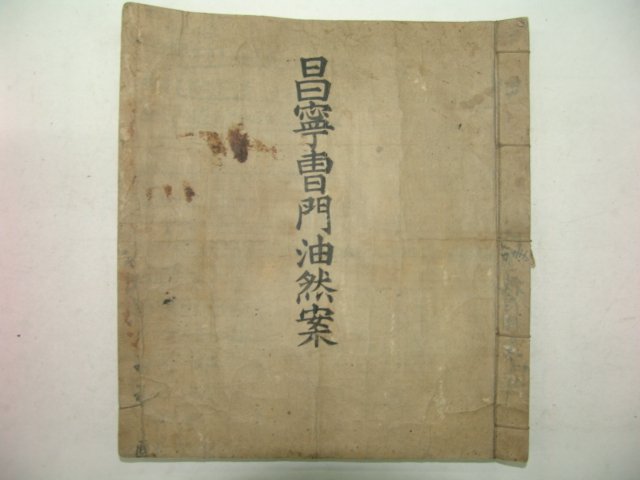 昌寧曺門油然案